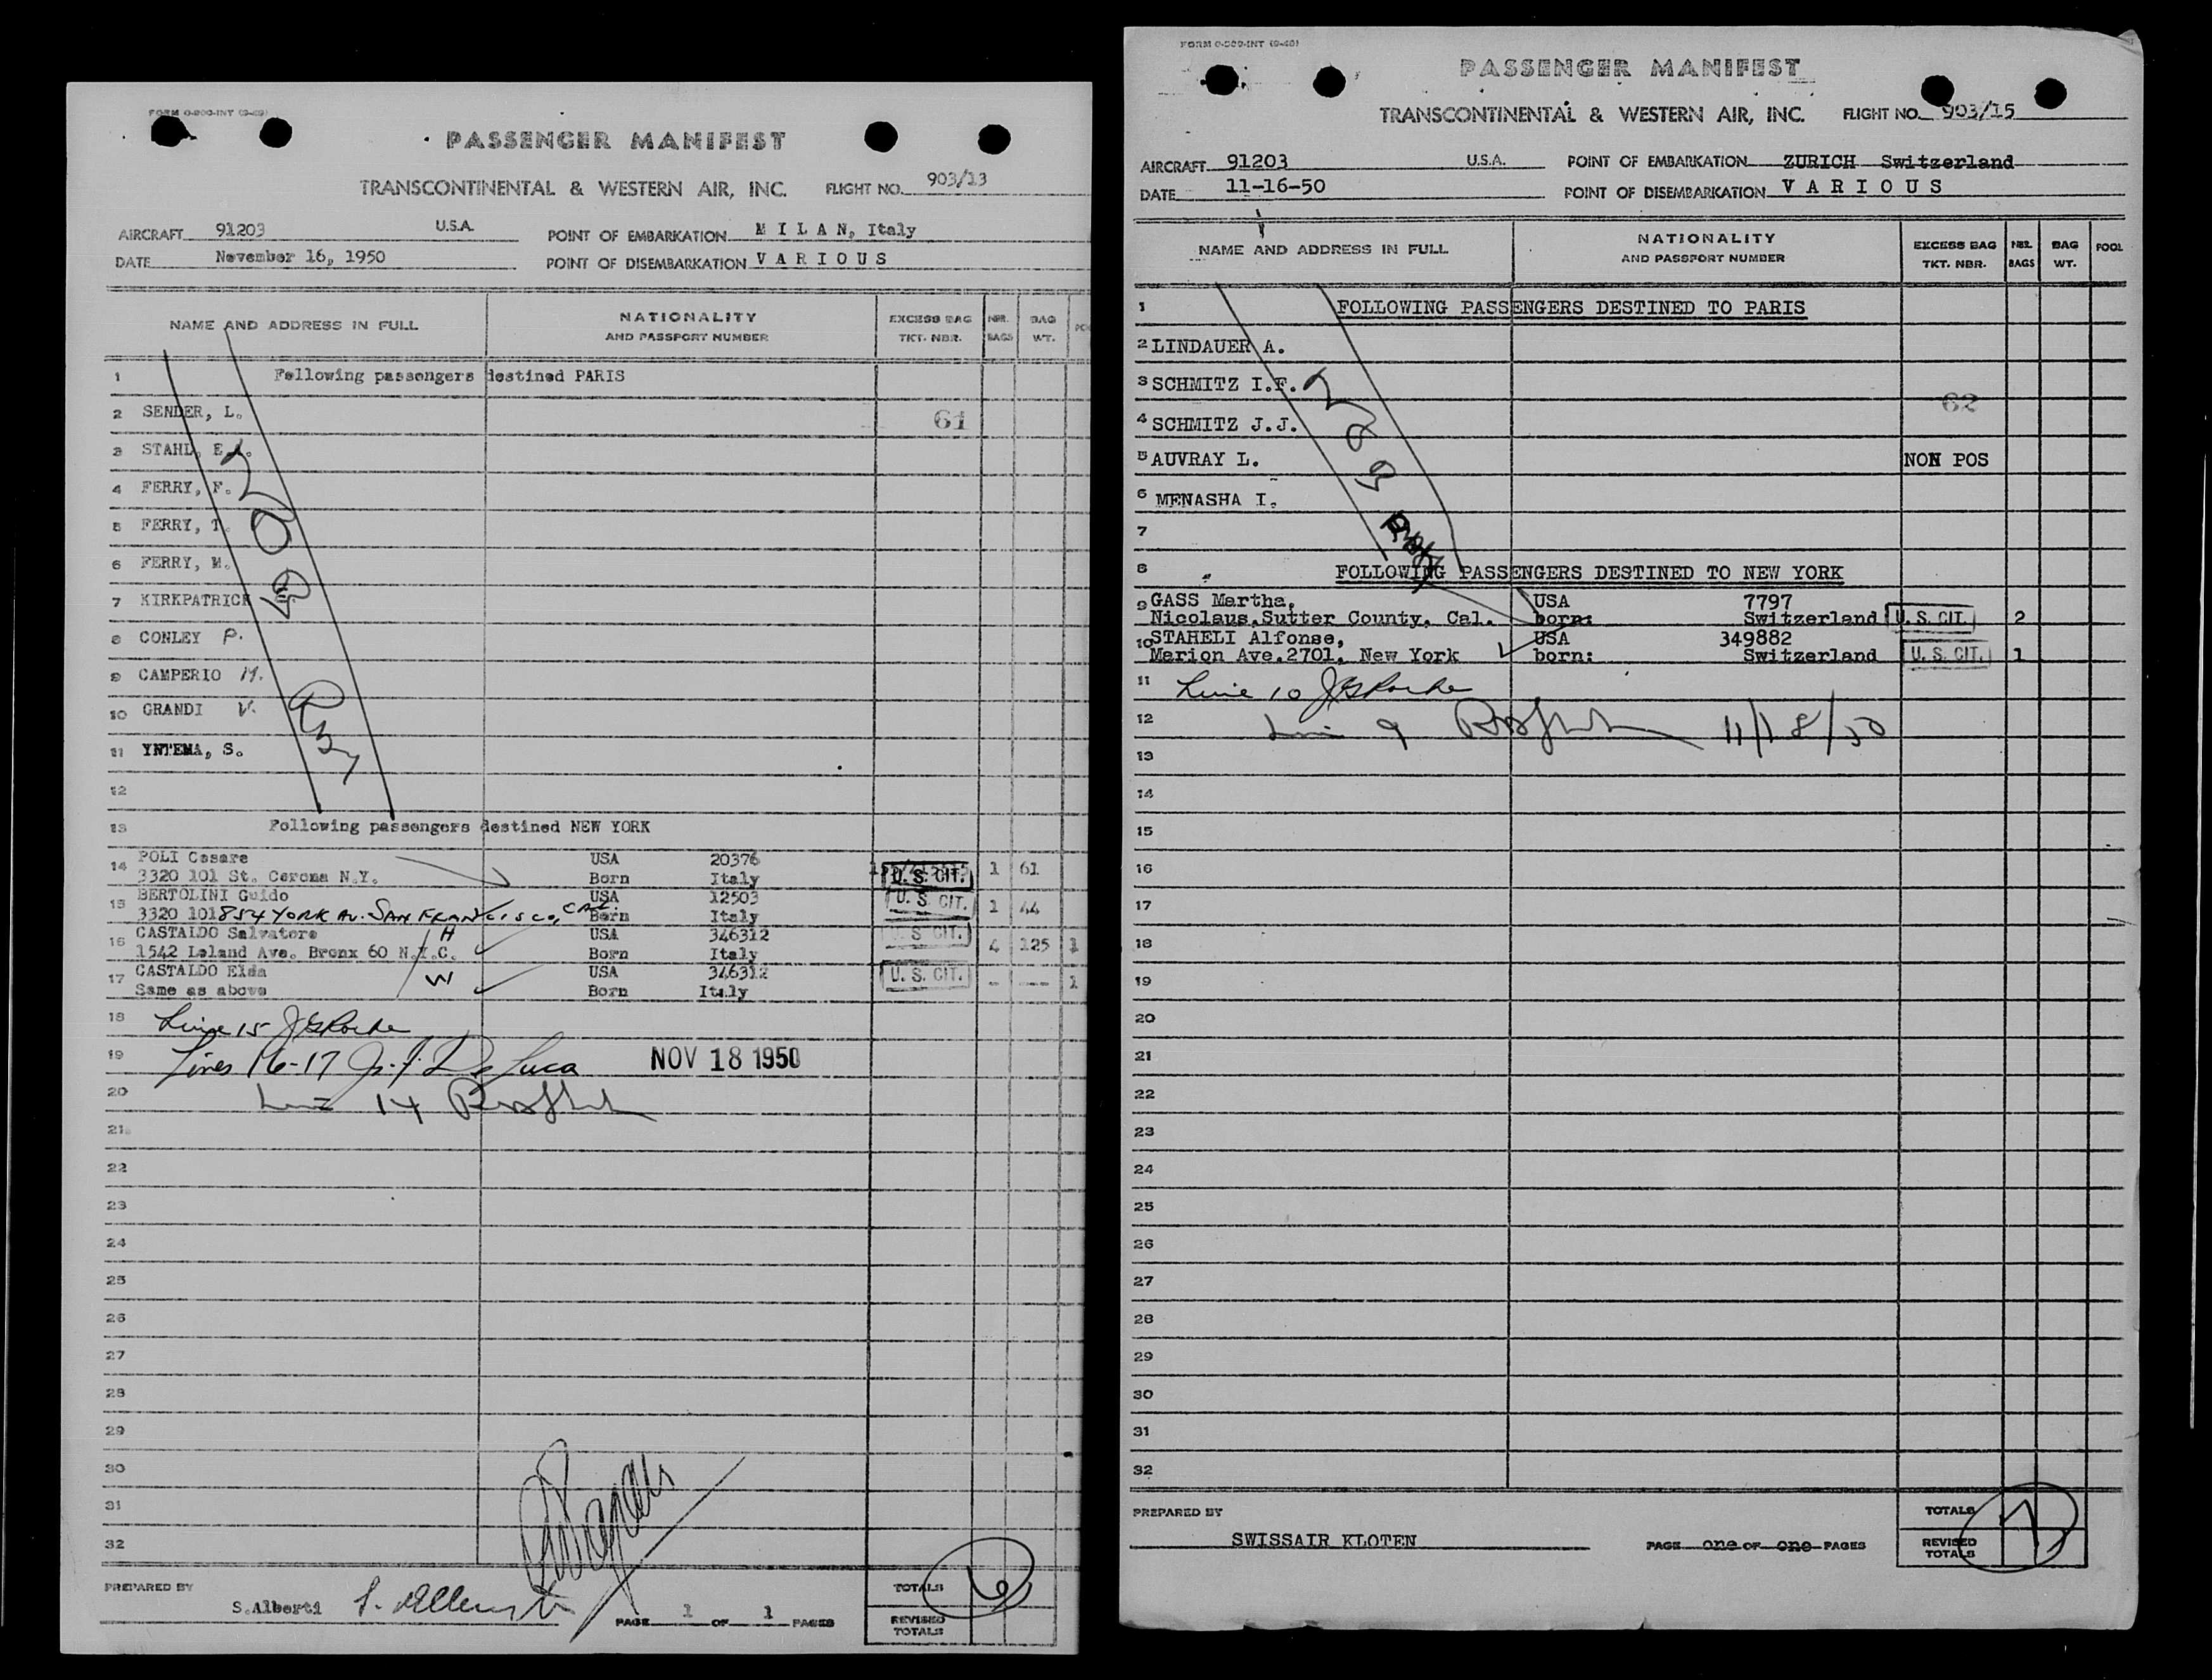 FORM 0-500-INT (9-49)
PASSENGER MANIFEST
TRANSCONTINENTAL & WESTERN AIR, INC. FLIGHT NO. 903/13
AIRCRAFT 91203 U.S.A. POINT OF EMBARKATION M I L A N, Italy
DATE November 16, 1950 POINT OF DISEMBARKATION V A R I O U S
NAME AND ADDRESS IN FULL NATIONALITY AND PASSPORT NUMBER EXCESS BAG TKT. NBR. NBR. BAGS BAG WT.
1 Following passengers destined PARIS
2 SENDER, L. 61
3 STAHL, E.
4 FERRY, F.
5 FERRY, T.
6 FERRY, M.
7 KIRKPATRICK
8 CONLEY P.
9 CAMPERIO M.
10 GRANDI V.
11 YNTEMA, S.
12
13 Following passengers destined NEW YORK
14 POLI Cesare USA 20376
3320 101 St. Corona N.Y. Born Italy U. S. CIT. 1 61
15 BERTOLINI Guido USA 12503
3320 101 854 YORK AV. SAN FRANCISCO, CAL. Born Italy U. S. CIT. 1 44
16 CASTALDO Salvatore H USA 346312
1542 Leland Ave. Bronx 60 N.Y.C. Born Italy U. S. CIT. 4 125 1
17 CASTALDO Elda W USA 346312
Same as above Born Italy U. S. CIT. - --- 1
18 Line 15
19 Lines 16-17 De Luca NOV 18 1950
20 Line 14
21
22
23
24
25
26
27
28
29
30
31
32
PREPARED BY S.Alberti PAGE 1 OF 1 PAGES
TOTALS
REVISED TOTALS
PASSENGER MANIFEST
TRANSCONTINENTAL & WESTERN AIR, INC. FLIGHT NO. 903/15
AIRCRAFT 91203 U.S.A. POINT OF EMBARKATION ZURICH Switzerland
DATE 11-16-50 POINT OF DISEMBARKATION V A R I O U S
NAME AND ADDRESS IN FULL NATIONALITY AND PASSPORT NUMBER EXCESS BAG TKT. NBR. NBR. BAGS BAG WT. POOL
1 FOLLOWING PASSENGERS DESTINED TO PARIS
2 LINDAUER A.
3 SCHMITZ I.F.
62
4 SCHMITZ J.J.
5 AUVRAY L. NON POS
6 MENASHA I.
7
8 FOLLOWING PASSENGERS DESTINED TO NEW YORK
9 GASS Martha, USA 7797
Nicolaus,Sutter County, Cal. born: Switzerland U. S. CIT. 2
10 STAHELI Alfonse, USA 349882
Marion Ave.2701, New York born: Switzerland U. S. CIT. 1
11 Line 10
12 Line 9 11/18/50
13
14
15
16
17
18
19
20
21
22
23
24
25
26
27
28
29
30
31
32
PREPARED BY SWISSAIR KLOTEN PAGE one OF one PAGES
TOTALS
REVISED TOTALS